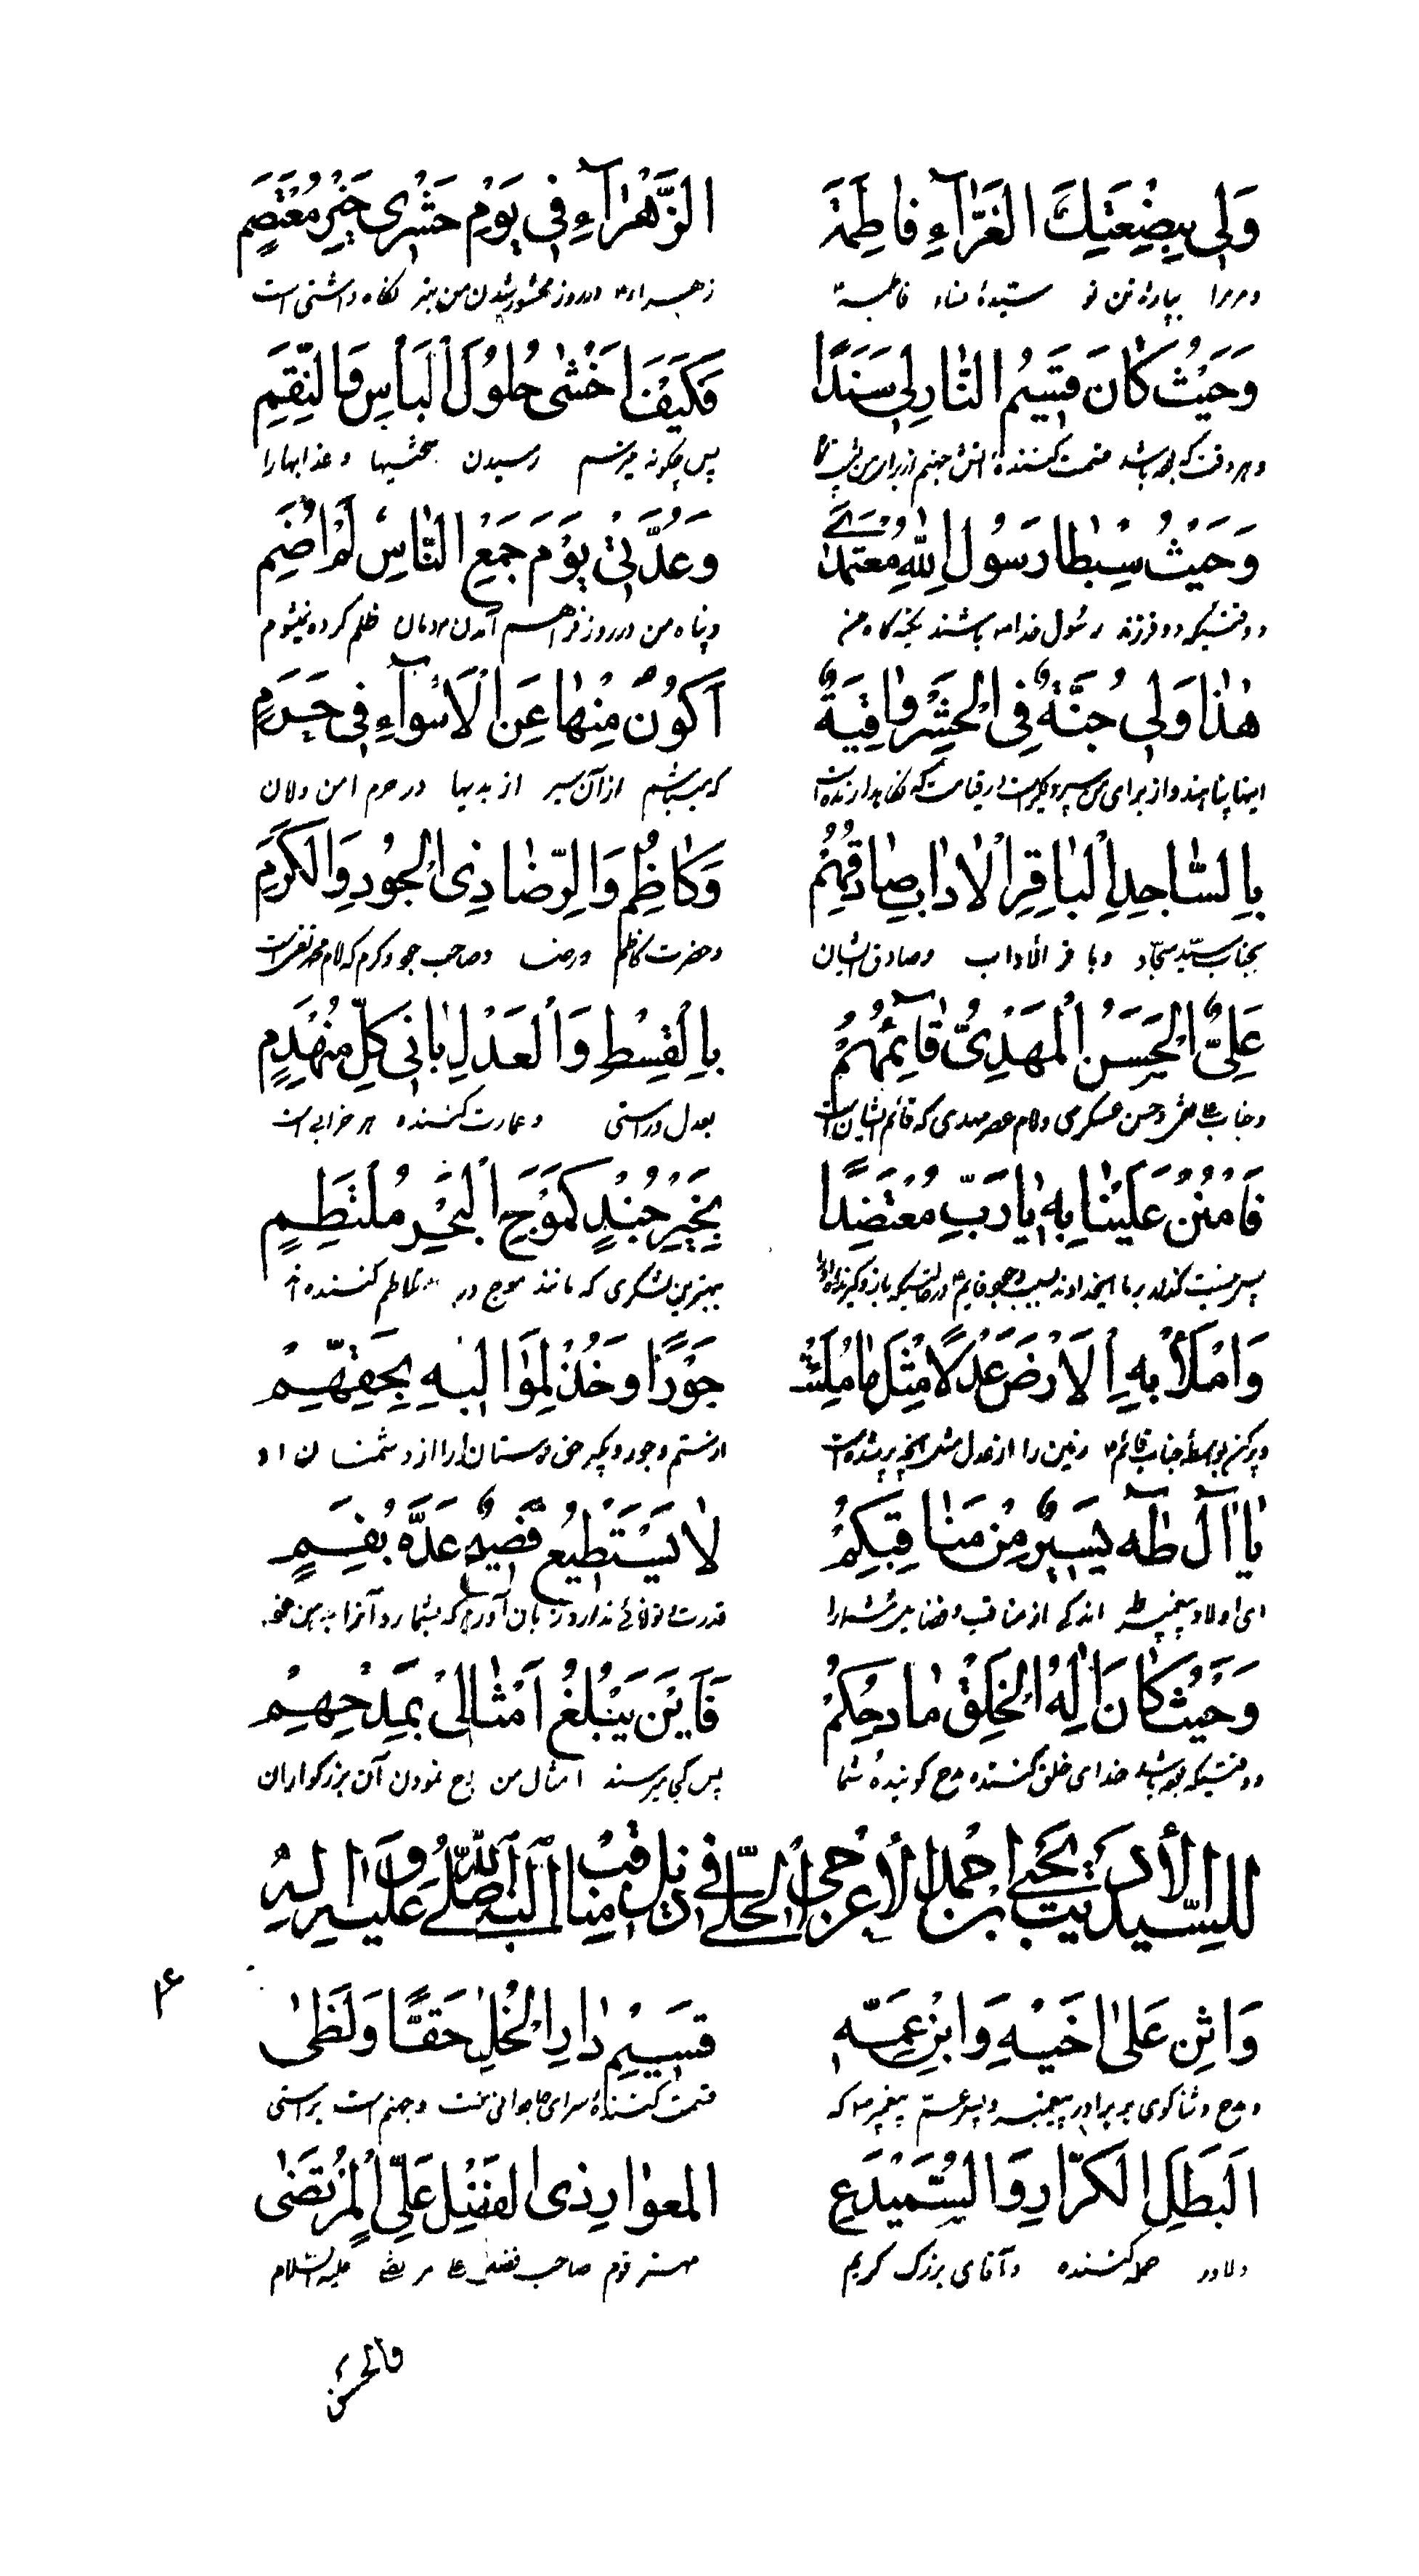 وَلِي بِبِضْعَتِكَ الغَرَّاءِ فاطِمَةَ الزَّهْرَاءِ فِي يَوْمِ حَشْرِي خَيْرُ مُعْتَصَمِ
ومرا بپاره تن تو سیّدهٔ نساء فاطمه زهرا در روز محشور شدن من بهتر نگاه داشتنی است
وَحَيْثُ كَانَ قَسِيْمُ النَّارِ لِي سَنَدًا فَكَيْفَ اَخْشٰى حُلُوْلَ الْبَأْسِ وَالنِّقَمِ
وهر وقت که بوده باشد قسمت کنندهٔ آتش جهنم از برای من پس چگونه میترسم رسیدن سختیها و عذابها را
وَحَيْثُ سِبْطَا رَسُوْلِ اللّٰهِ مُعْتَمَدِي وَعُدَّتِي يَوْمَ جَمْعِ النَّاسِ لَمْ اُضَمِ
ووقتیکه دو فرزند رسول خدا باشند تکیه گاه من وپناه من در روز فراهم آمدن مردمان ظلم کرده نمیشوم
هٰذَا وَلِي جُنَّةٌ فِي الْحَشْرِ وَاقِيَةٌ اَكُوْنُ مِنْهَا عَنِ الْاَسْوَآءِ فِي حَرَمٍ
اینها پناهند و از برای من سپر دیگر است در قیامت که نگاهدارنده است که میباشم از آن سپر از بدیها در حرم امن وامان
بِالسَّاجِدِ الْبَاقِرِ الْآدَابِ صَادِقِهِمْ وَكَاظِمٍ وَالرِّضَا ذِي الْجُوْدِ وَالْكَرَمِ
بجناب سیّد سجّاد وباقر الآداب وصادق ایشان وحضرت کاظم ورضا وصاحب جود وکرم که امام محمد تقی است
عَلِيٌّ الْحَسَنُ الْمَهْدِيُّ قَآئِمُهُمْ بِالْقِسْطِ وَالْعَدْلِ بَانِي كُلِّ مُنْهَدِمٍ
وجناب علی نقی وحسن عسکری وامام عصر مهدی که قائم ایشان است بعدل وراستی وعمارت کننده هر خرابی است
فَامْنُنْ عَلَيْنَا بِهِ يَا رَبِّ مُعْتَضِدًا بِخَيْرِ جُنْدٍ كَمَوْجِ الْبَحْرِ مُلْتَطِمٍ
پس منت گذار بر ما ایخداوند بسبب وجود قایم در حالتیکه بازو گیرنده بهترین لشکری که مانند موج دریا تلاطم کننده
وَامْلَأْ بِهِ الْاَرْضَ عَدْلًا مِثْلَ مَا مُلِئَتْ جَوْرًا وَخُذْ لِمُوَالِيْهِ بِحَقِّهِمْ
وپر کن بواسطهٔ جناب قائم زمین را از عدل مثل آنچه پر شده است از ستم وجور وبگیر حق دوستان او را از دشمنان او
يَا اٰلَ طٰهٰ يَسِيْرٌ مِنْ مَنَاقِبِكُمْ لَا يَسْتَطِيْعُ فَصِيْحٌ عَدَّهُ بِفَمٍ
ای اولاد پیغمبر اندکی از مناقب وفضایل شما را قدرت وتوانائی ندارد زبان آوری که بشمارد آنرا بدهن خود
وَحَيْثُ كَانَ اِلٰهُ الْخَلْقِ مَادِحَكُمْ فَاَيْنَ يَبْلُغُ اَمْثَالِي بِمَدْحِهِمْ
ووقتیکه بوده باشد خدای خلق کننده مدح گویندهٔ شما پس کجا میرسند امثال من بمدح نمودن آن بزرگواران
للسّيد الأديب يحيى بن احمد الأعرجي الحلّي في ذيل مناقب النبي صلى الله عليه وآله
وَاثْنِ عَلىٰ اَخِيْهِ وَابْنِ عَمِّهِ قَسِيْمِ دَارِ الْخُلْدِ حَقًّا وَلَظىٰ
ومدح وثنا گوی بر برادر پیغمبر وپسر عمّ پیغمبر که قسمت کنندهٔ سرای جاودانی جنت وجهنم است براستی
اَلْبَطَلِ الْكَرَّارِ وَالسَّمَيْدَعِ المغوار ذِي الفَضْلِ عَلِيِّ الْمُرْتَضىٰ
دلاور حمله کننده وآقای بزرگ کریم مهتر قوم صاحب فضل علی مرتضی علیه السّلام